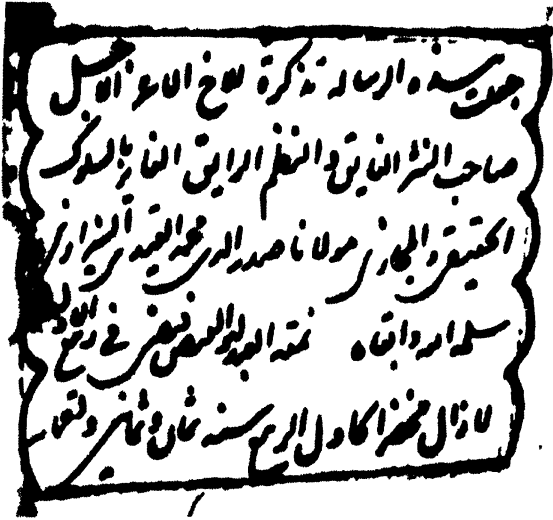 جعلت هذه الرساله تذكرة للاخ الاعز الاجل
صاحب النثر الفايق والنظم الرايق الفايز بالسلوك
الحقيقي والمجازي مولانا صدر الدين محمد الشيرازي
سلمه الله وابقاه نمقه العبد فيض في ربيع الاول
لازال مخضرا كاول الربيع سنه ثمان وثمانين